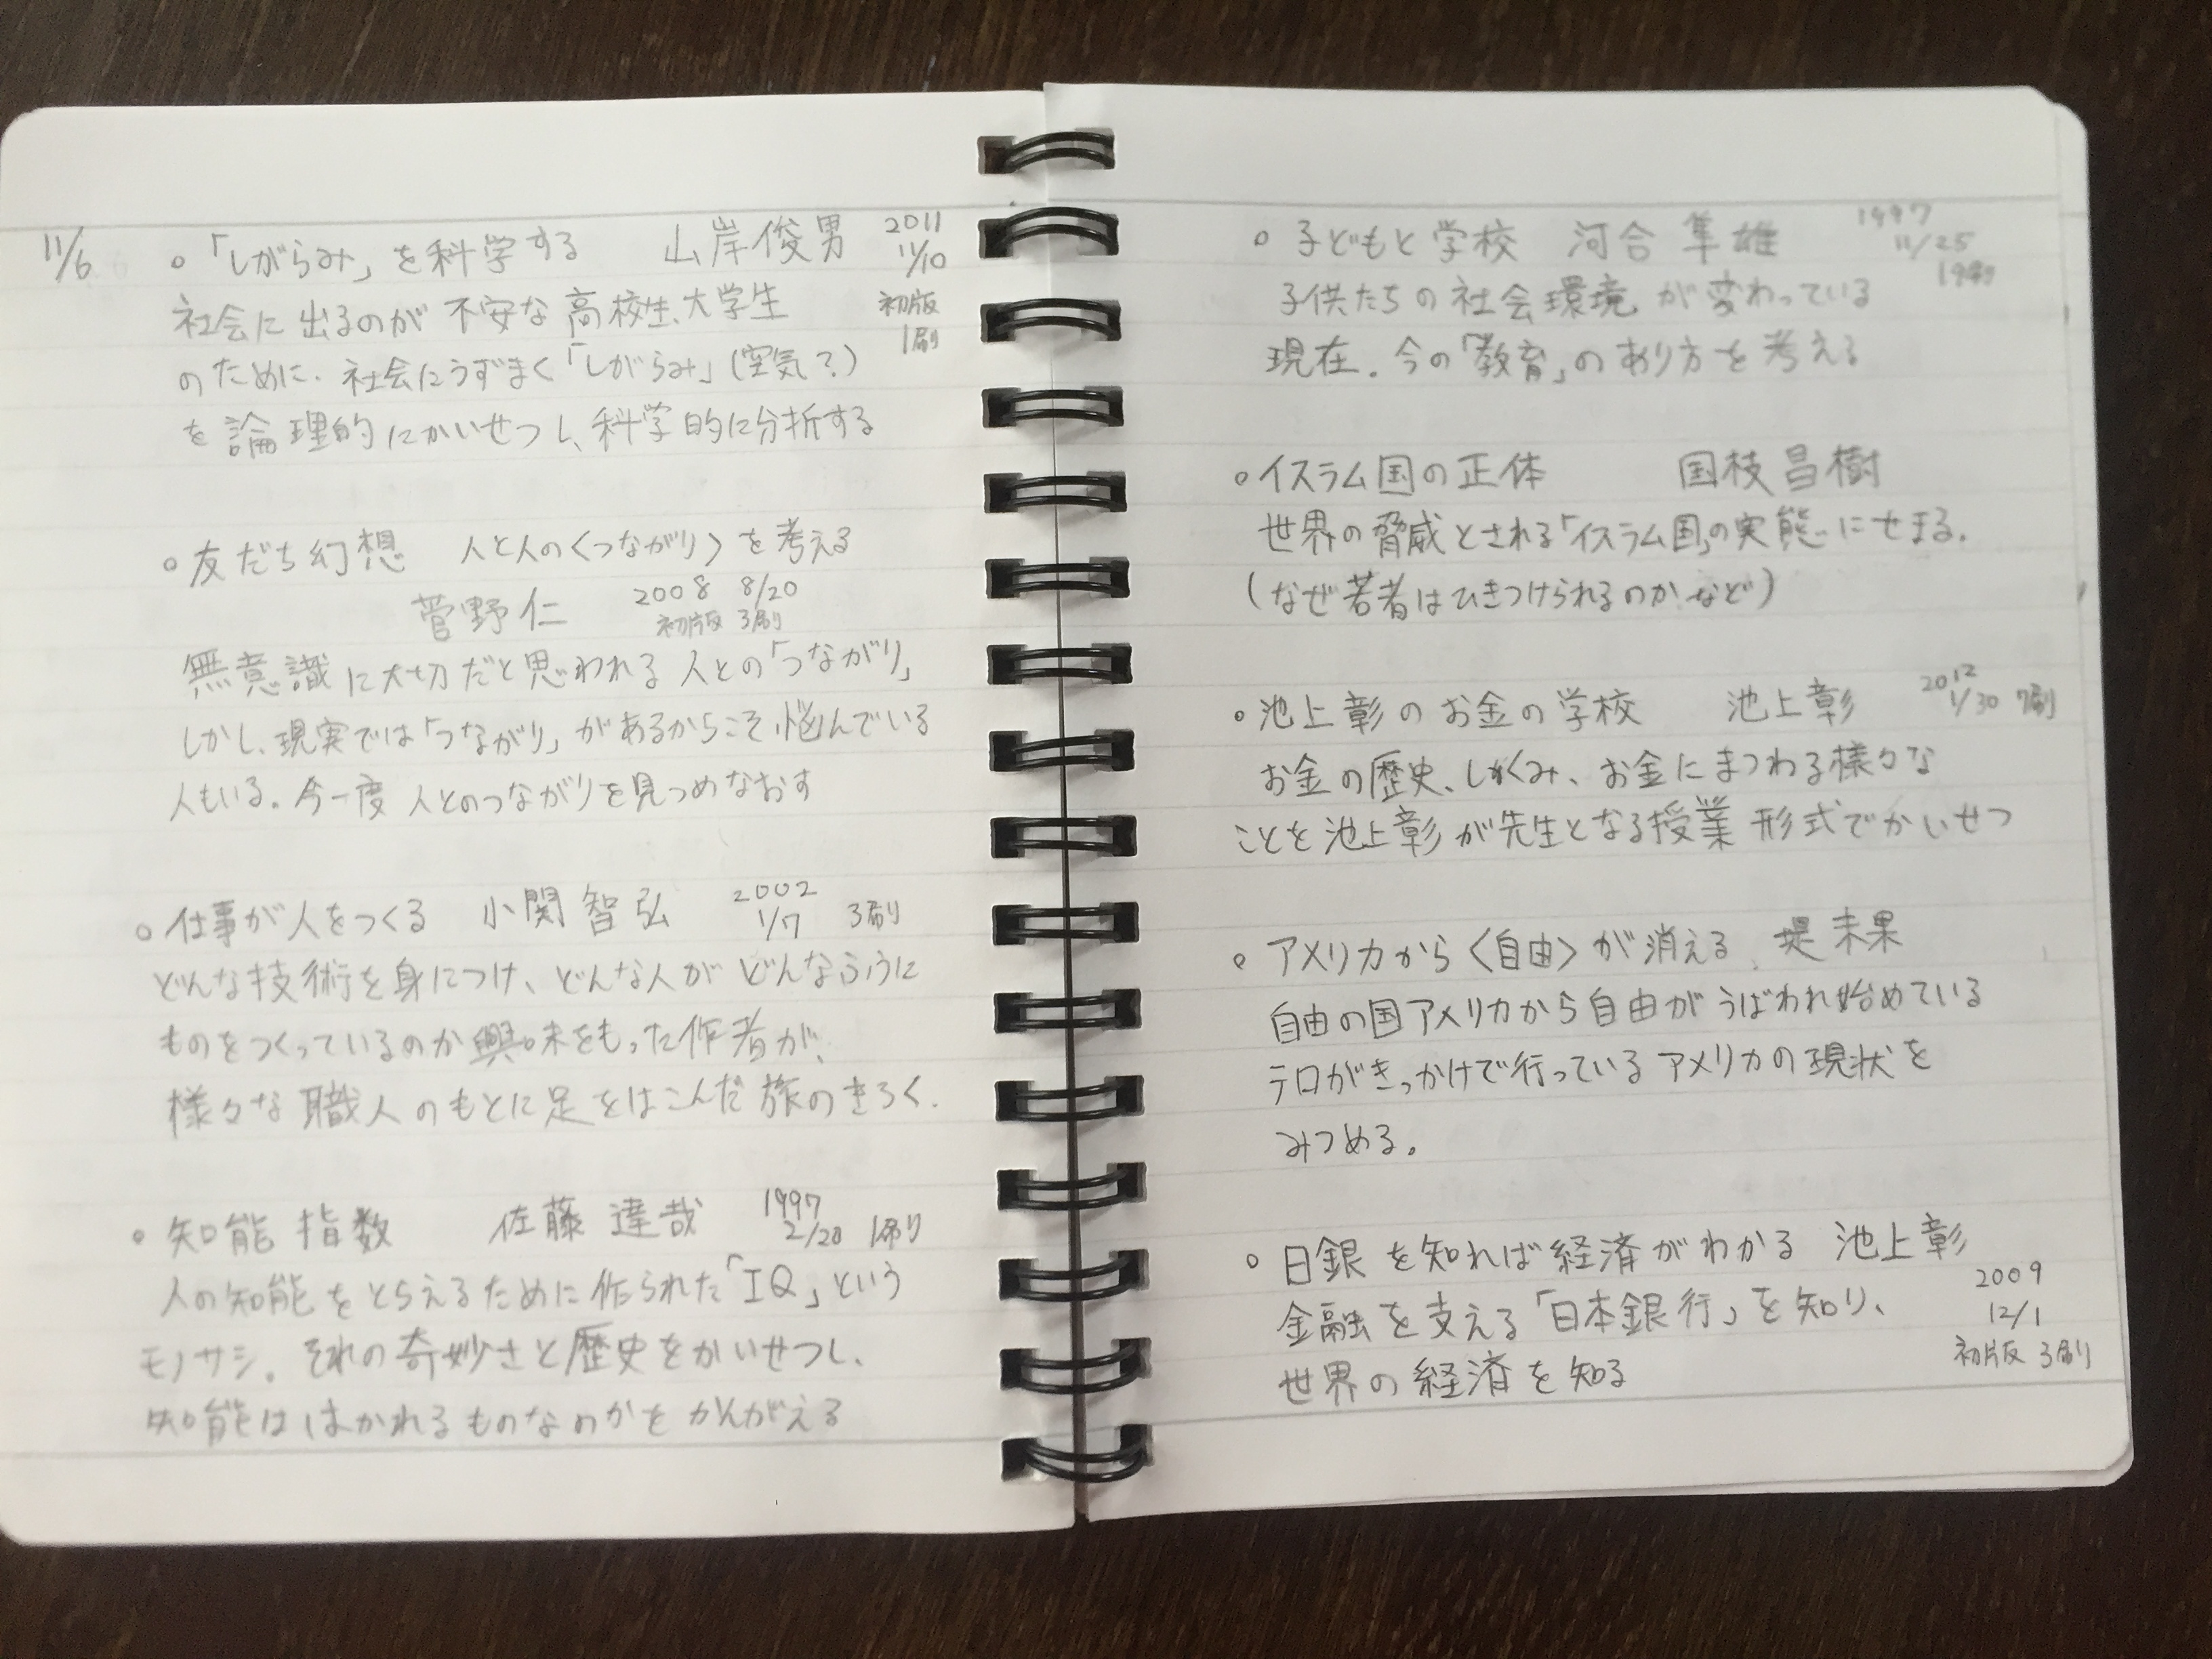 11/6
。「しがらみ」を科学する 山岸俊男 2011
11/10
初版
1刷
社会に出るのが不安な高校生、大学生
のために、社会にうずまく「しがらみ」(空気?)
を論理的にかいせつし、科学的に分析する
。友だち幻想 人と人の〈つながり〉を考える
菅野仁 2008 8/20
初版 3刷
無意識に大切だと思われる人との「つながり」
しかし、現実では「つながり」があるからこそ、悩んでいる
人もいる。今一度 人とのつながりを見つめなおす
。仕事が人をつくる 小関智弘 2002
1/7 3刷り
どんな技術を身につけ、どんな人がどんなふうに
ものをつくっているのか興味をもった作者が、
様々な職人のもとに足をはこんだ旅のきろく.
。知能指数 佐藤達哉 1997
2/20 1刷り
人の知能をとらえるために作られた「IQ」という
モノサシ。それの奇妙さと歴史をかいせつし、
知能ははかれるものなのかをかんがえる
。子どもと学校 河合隼雄 1997
11/25
子供たちの社会環境が変わっている
現在。今の「教育」のあり方を考える
。イスラム国の正体 国枝昌樹
世界の脅威とされる「イスラム国」の実態にせまる.
(なぜ若者はひきつけられるのかなど)
。池上彰のお金の学校 池上彰 2012
1/30 7刷
お金の歴史、しくみ、お金にまつわる様々な
ことを池上彰が先生となる授業形式でかいせつ
。アメリカから〈自由〉が消える 堤未果
自由の国アメリカから自由がうばわれ始めている
テロがきっかけで行っているアメリカの現状を
みつめる。
。日銀を知れば経済がわかる 池上彰
2009
12/1
初版 3刷り
金融を支える「日本銀行」を知り、
世界の経済を知る